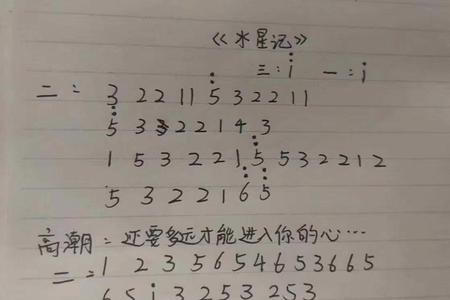 《水星记》
三:i 一:i
二: 3 2 2 1 1 5 3 2 2 1 1
5 3 3 2 2 1 4 3
1 5 3 2 2 1 5 5 3 2 2 1 2
5 3 2 2 1 6 5
高潮:还要多远才能进入你的心…
二:1 2 3 5 6 5 4 6 5 3 6 6 5
6 5 i 3 2 5 3 2 5 3